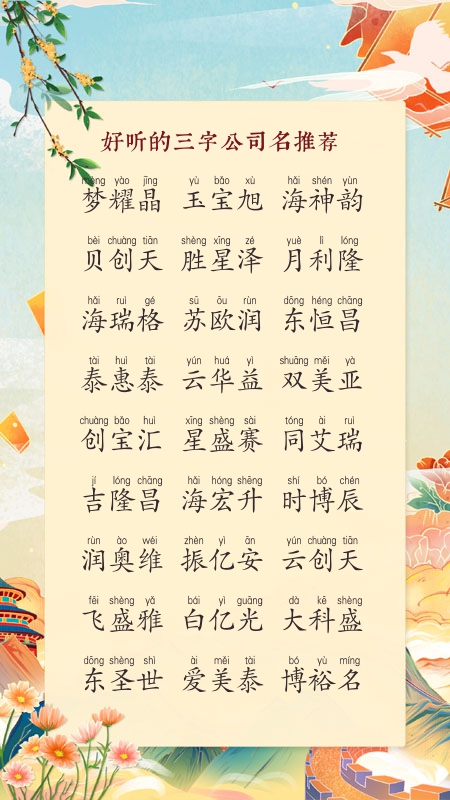 好听的三字公司名推荐
mèng yào jīng yù bǎo xù hǎi shén yùn
梦耀晶 玉宝旭 海神韵
bèi chuàng tiān shèng xīng zé yuè lì lóng
贝创天 胜星泽 月利隆
hǎi ruì gé sū ōu rùn dōng héng chāng
海瑞格 苏欧润 东恒昌
tài huì tài yún huá yì shuāng měi yà
泰惠泰 云华益 双美亚
chuàng bǎo huì xīng shèng sài tóng ài ruì
创宝汇 星盛赛 同艾瑞
jí lóng chāng hǎi hóng shēng shí bó chén
吉隆昌 海宏升 时博辰
rùn ào wéi zhèn yì ān yún chuàng tiān
润奥维 振亿安 云创天
fēi shèng yǎ bái yì guāng dà kē shèng
飞盛雅 白亿光 大科盛
dōng shèng shì ài měi tài bó yù míng
东圣世 爱美泰 博裕名